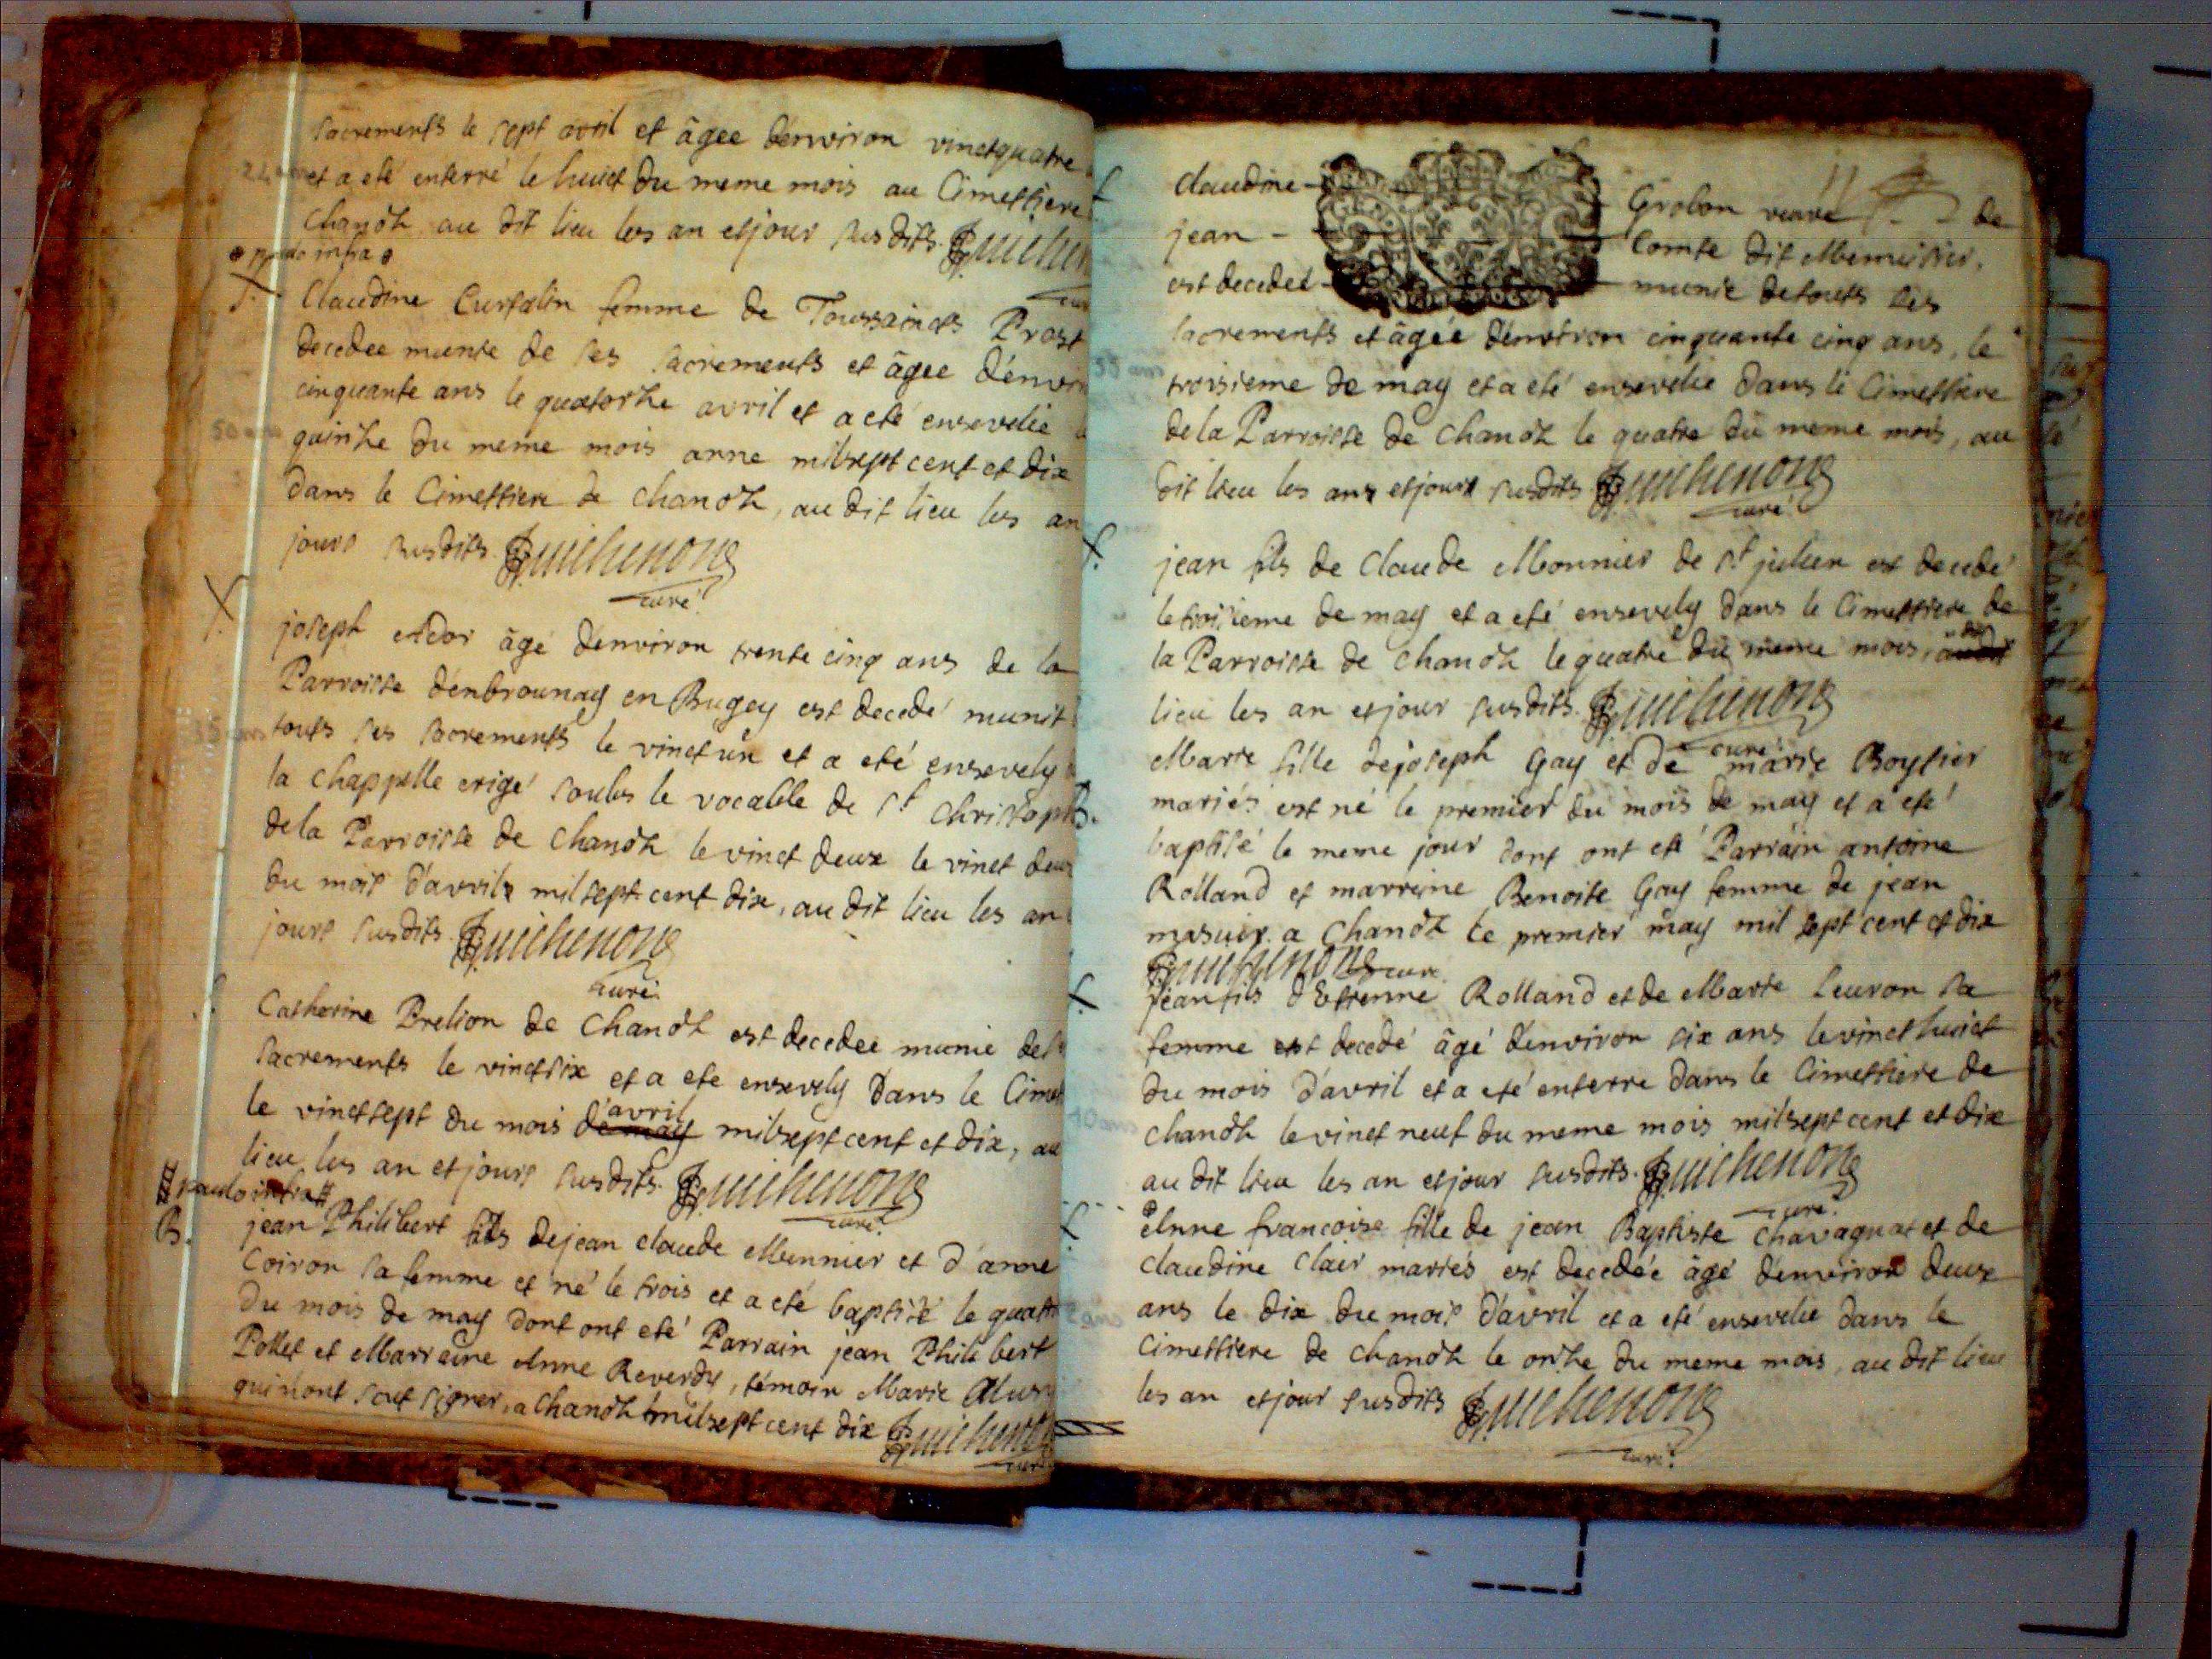 sacrements le sept avril et âgee denviron vinctquatre
et a eté enterré le huict du meme mois au Cimettiere
chanoz au dit lieu les an et jour susdits. Guichenon
curé
paulo infra
Claudine Curtalin femme de Toussaincts Prost
decedee munie de ses sacrements et âgee d'envir
cinquante ans le quatorze avril et a eté ensevelie
quinze du meme mois anne milsept cent et dix
dans le Cimettiere de chanoz, au dit lieu les an
jours susdits. Guichenon
curé
joseph Ador âgé denviron trente cinq ans de la
Parroisse dénbrounay en Bugey est decedé munit
touts ses sacrements le vinct un et a eté ensevely
la chappelle erigé soubs le vocable de st christoph
de la Parroisse de chanoz le vinct deux le vinct deux
du mois d'avril mil sept cent dix, au dit lieu les an
jours susdits. Guichenon
curé
Catherine Brelion de chanoz est decedee munie de
sacrements le vinctsix et a ete ensevely dans le Cimet
le vinctsept du mois de may d'avril milsept cent et dix, au
lieu les an et jours susdits. Guichenon
curé
paulo infra
B. jean Philibert fils de jean claude Munnier et d'anne
Coiron sa femme et né le trois et a eté baptisé le quatr
du mois de may dont ont eté Parrain jean Philibert
Pollet et Marraine Anne Reverdy, témoin Marie
qui n'ont sceut signer, a chanoz milsept cent dix Guichenon
curé
claudine Grobon veuve de
jean Comte dit Memeisier,
est decedee munie de touts les
sacrements et âgée denviron cinquante cinq ans, le
troisieme de may et a eté ensevelie dans le Cimettiere
de la Parroisse de chanoz le quatre du meme mois, au
dit lieu les ans et jours susdits Guichenon
curé
jean fils de claude Monnier de st julien est decedé
le troisieme de may et a eté ensevely dans le Cimettiere de
la Parroisse de chanoz le quatre du meme mois, audit
lieu les an et jour susdits. Guichenon
curé
Marie fille de joseph Gay et de marie Boytier
mariés est né le premier du mois de may et a eté
baptisé le meme jour dont ont eté Parrain antoine
Rolland et marreine Benoite Gay femme de jean
masuir. a Chanoz le premier may mil sept cent et dix
Guichenon curé
jean fils d'Etienne Rolland et de Marie Leuron sa
femme est decedé âgé denviron six ans le vinct huict
du mois d'avril et a eté enterre dans le Cimettiere de
chanoz le vinct neuf du meme mois milsept cent et dix
au dit lieu les an et jour susdits. Guichenon
curé
Anne francoise fille de jean Baptiste Chavagnat et de
claudine clair mariés est decedée âgé denviron deux
ans le dix du mois d'avril et a eté ensevelie dans le
Cimettiere de chanoz le onze du meme mois, au dit lieu
les an et jour susdits Guichenon
curé